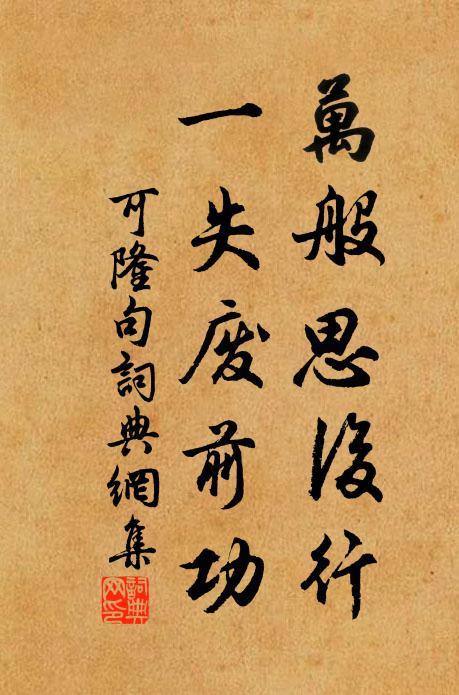 萬般思後行
一失废前功
可隆句詞典網集
詞典
网印